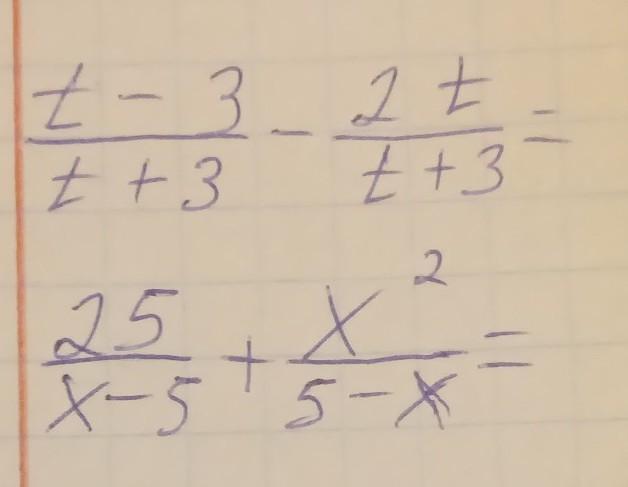 (t - 3)/(t + 3) - (2t)/(t + 3) =
25/(x - 5) + x²/(5 - x) =